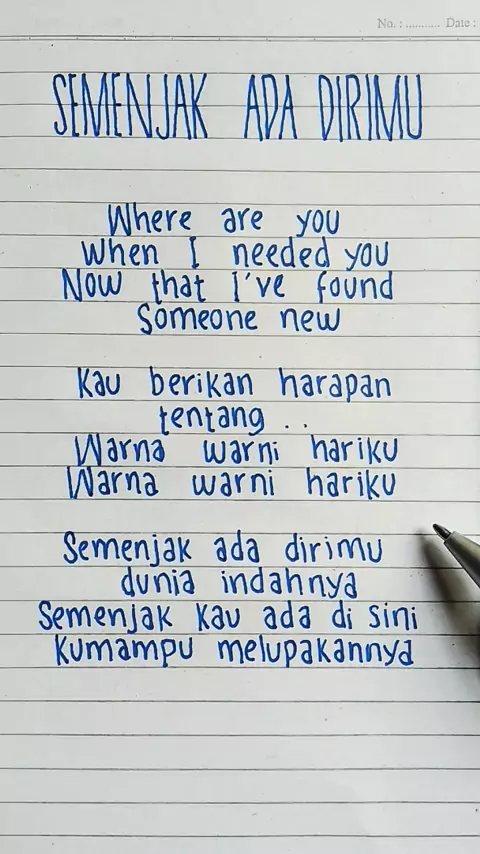 No. : ........... Date :
SEMENJAK ADA DIRIMU
Where are you
When I needed you
Now that I've found
Someone new
Kau berikan harapan
tentang ..
Warna warni hariku
Warna warni hariku
Semenjak ada dirimu
dunia indahnya
Semenjak kau ada di sini
Kumampu melupakannya